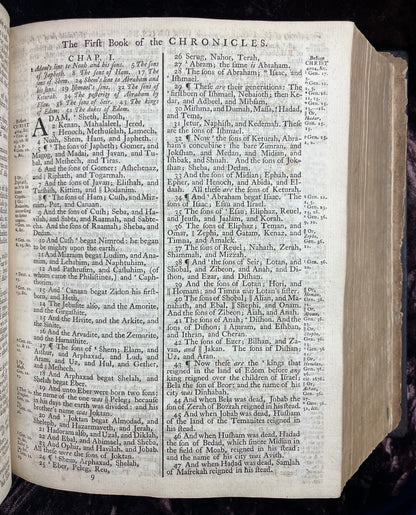 The First Book of the CHRONICLES.
CHAP. I.
1 Adam's line to Noah and his sons. 5 The sons
of Japheth. 8 The sons of Ham. 17 The
sons of Shem. 24 Shem's line to Abraham and
his sons. 29 Ishmael's sons. 32 The sons of
Keturah. 34 The posterity of Abraham by
Esau. 38 The sons of Seir. 43 The kings
of Edom. 51 The dukes of Edom.
ADAM, Sheth, Enosh,
2 Kenan, Mahalaleel, Jered,
3 Henoch, Methuselah, Lamech,
4 Noah, Shem, Ham, and Japheth.
5 ¶ The sons of Japheth; Gomer, and
Magog, and Madai, and Javan, and Tu-
bal, and Meshech, and Tiras.
6 And the sons of Gomer; Ashchenaz,
and Riphath, and Togarmah.
7 And the sons of Javan; Elishah, and
Tarshish, Kittim, and Dodanim.
8 ¶ The sons of Ham; Cush, and Miz-
raim, Put, and Canaan.
9 And the sons of Cush; Seba, and Ha-
vilah, and Sabta, and Raamah, and Sabte-
cha. And the sons of Raamah; Sheba, and
Dedan.
10 And Cush begat Nimrod: he began
to be mighty upon the earth.
11 And Mizraim begat Ludim, and Ana-
mim, and Lehabim, and Naphtuhim,
12 And Pathrusim, and Casluhim, (of
whom came the Philistines,) and Caph-
thorim.
13 And Canaan begat Zidon his first-
born, and Heth,
14 The Jebusite also, and the Amorite,
and the Girgashite,
15 And the Hivite, and the Arkite, and
the Sinite,
16 And the Arvadite, and the Zemarite,
and the Hamathite.
17 ¶ The sons of Shem; Elam, and
Asshur, and Arphaxad, and Lud, and
Aram, and Uz, and Hul, and Gether,
and Meshech.
18 And Arphaxad begat Shelah, and
Shelah begat Eber.
19 And unto Eber were born two sons:
the name of the one was Peleg; because
in his days the earth was divided: and his
brother's name was Joktan.
20 And Joktan begat Almodad, and
Sheleph, and Hazarmaveth, and Jerah,
21 Hadoram also, and Uzal, and Diklah,
22 And Ebal, and Abimael, and Sheba,
23 And Ophir, and Havilah, and Jobab.
All these were the sons of Joktan.
24 ¶ Shem, Arphaxad, Shelah,
25 Eber, Peleg, Reu,
9
26 Serug, Nahor, Terah,
27 Abram; the same is Abraham.
28 The sons of Abraham; Isaac, and
Ishmael.
29 ¶ These are their generations: The
firstborn of Ishmael, Nebaioth; then Ke-
dar, and Adbeel, and Mibsam,
30 Mishma, and Dumah, Massa, Hadad,
and Tema,
31 Jetur, Naphish, and Kedemah. These
are the sons of Ishmael.
32 ¶ Now the sons of Keturah, Abra-
ham's concubine: she bare Zimran, and
Jokshan, and Medan, and Midian, and
Ishbak, and Shuah. And the sons of Jok-
shan; Sheba, and Dedan.
33 And the sons of Midian; Ephah, and
Epher, and Henoch, and Abida, and El-
daah. All these are the sons of Keturah.
34 ¶ And Abraham begat Isaac. The
sons of Isaac; Esau and Israel.
35 ¶ The sons of Esau; Eliphaz, Reuel,
and Jeush, and Jaalam, and Korah.
36 The sons of Eliphaz; Teman, and
Omar, Zephi, and Gatam, Kenaz, and
Timna, and Amalek.
37 The sons of Reuel; Nahath, Zerah,
Shammah, and Mizzah.
38 ¶ And the sons of Seir; Lotan, and
Shobal, and Zibeon, and Anah, and Di-
shon, and Ezar, and Dishan.
39 And the sons of Lotan; Hori, and
|| Homam: and Timna was Lotan's sister.
40 The sons of Shobal; || Alian, and Ma-
nahath, and Ebal, || Shephi, and Onam.
And the sons of Zibeon; Aiah, and Anah.
41 The sons of Anah; Dishon. And the
sons of Dishon; || Amram, and Eshban,
and Ithran, and Cheran.
42 The sons of Ezer; Bilhan, and Za-
van, and || Jakan. The sons of Dishan;
Uz, and Aran.
43 ¶ Now these are the kings that
reigned in the land of Edom before any
king reigned over the children of Israel;
Bela the son of Beor: and the name of his
city was Dinhabah.
44 And when Bela was dead, Jobab the
son of Zerah of Bozrah reigned in his stead.
45 And when Jobab was dead, Husham
of the land of the Temanites reigned in
his stead.
46 And when Husham was dead, Hadad
the son of Bedad, which smote Midian in
the field of Moab, reigned in his stead:
and the name of his city was Avith.
47 And when Hadad was dead, Samlah
of Masrekah reigned in his stead.
Before
CHRIST